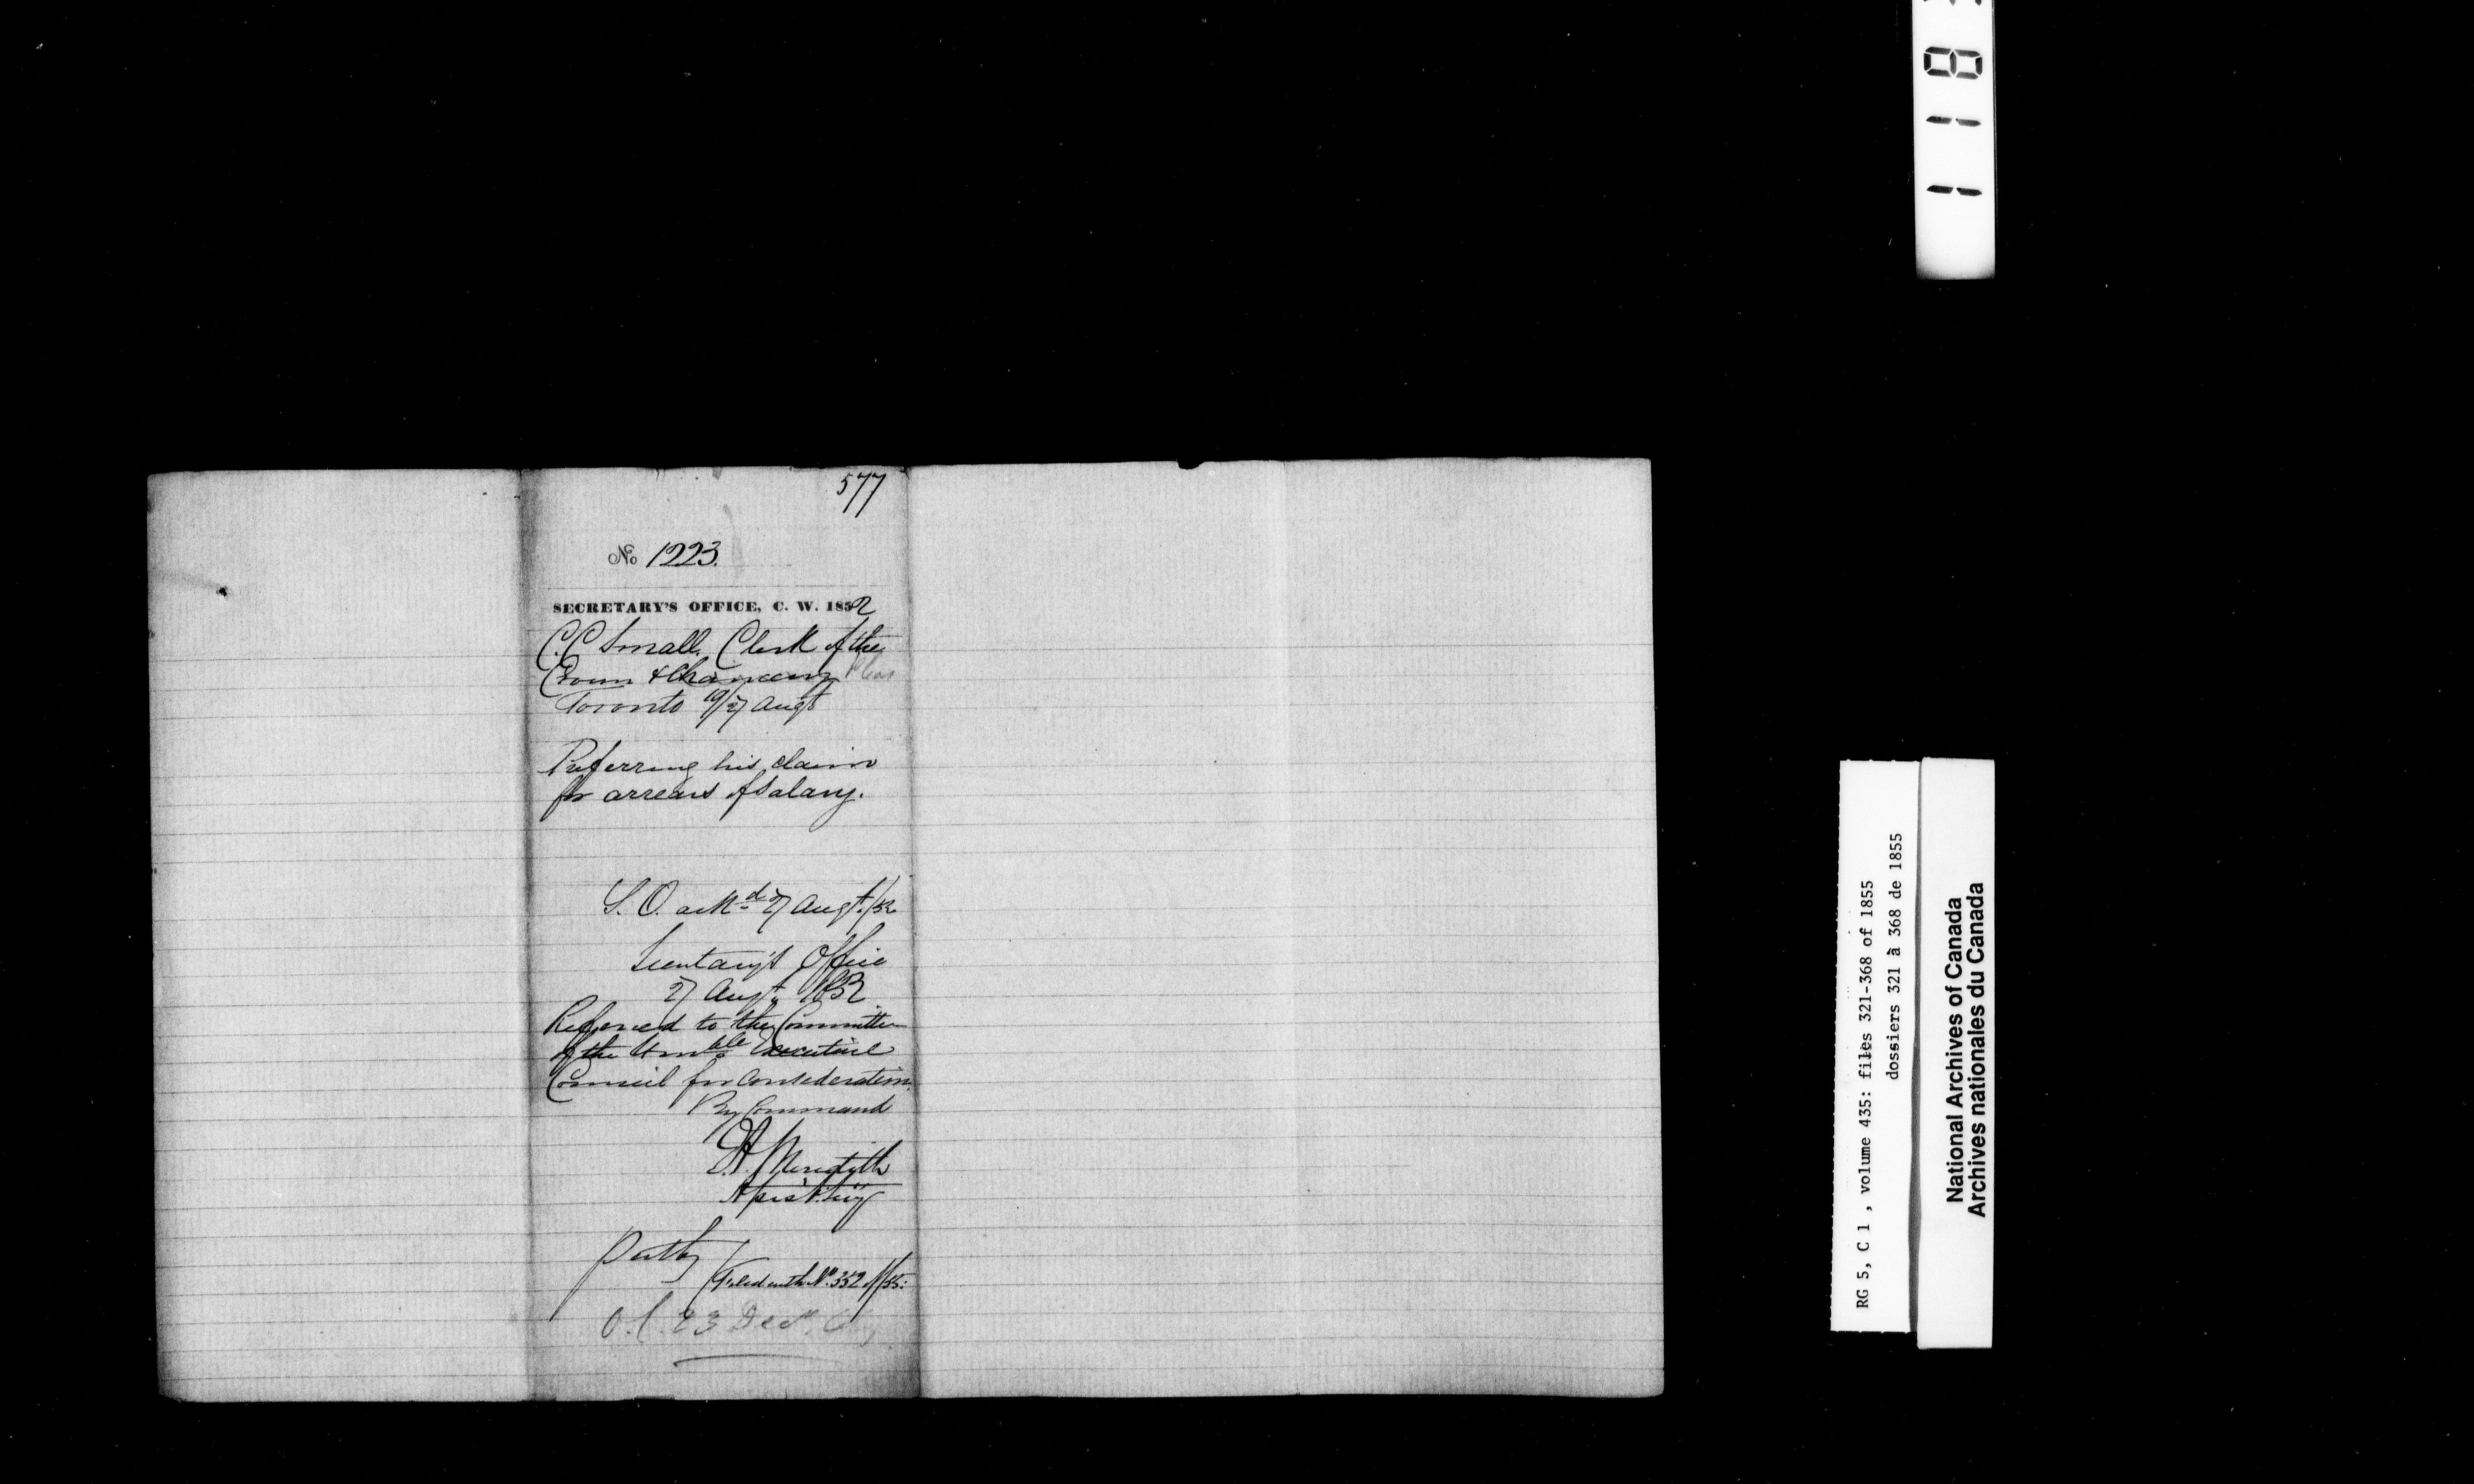 577
No 1223.
SECRETARY'S OFFICE, C. W. 1852
C.C Small. Clerk of the
Crown & Chancery Pleas
Toronto 19/27 Augt
Preferring his claim
for arrears of Salary.
L. O. ackd 27 Augt./52
Secretary's Office
27 Augt. 1852
Referred to the Committee
of the Honble Executive
Council for Consideration.
By Command
E.A. Meredith
Assist. Secy
(Filed with No. 352 of/55.
O.C. 23 Decr.
1 1 8
RG 5, C 1 , volume 435: files 321-368 of 1855
dossiers 321 à 368 de 1855
National Archives of Canada
Archives nationales du Canada